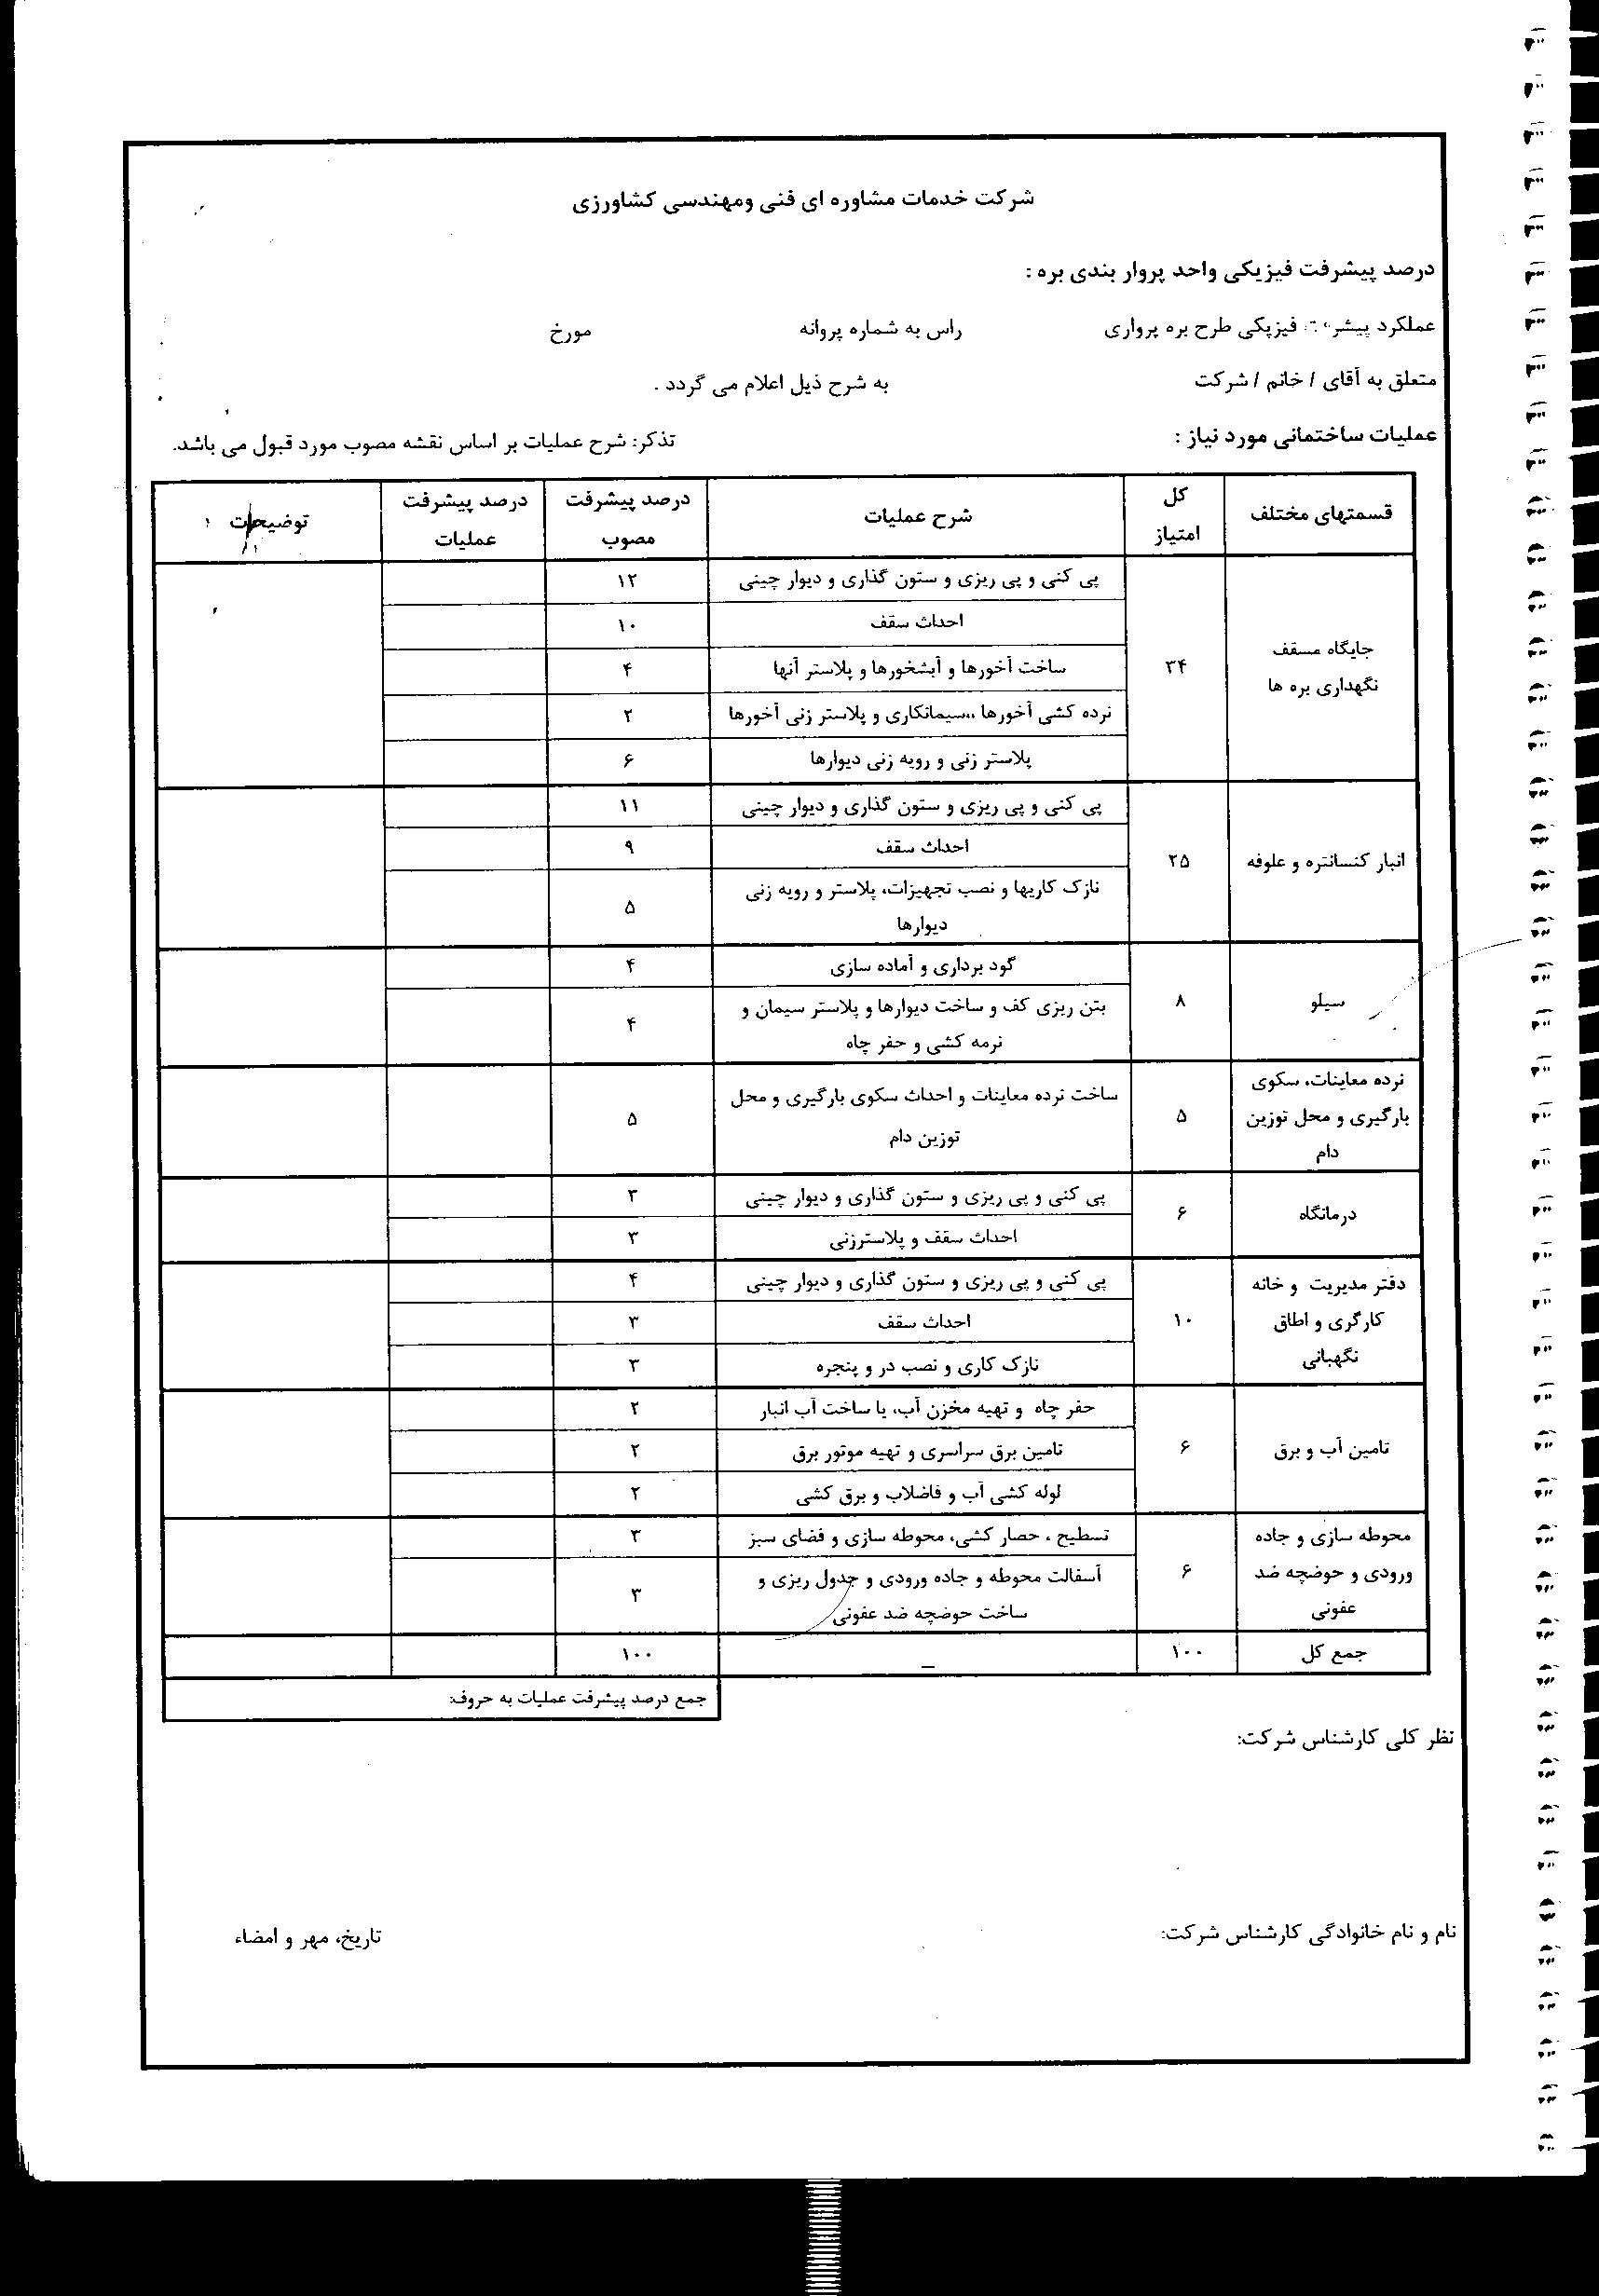 شرکت خدمات مشاوره ای فنی ومهندسی کشاورزی
درصد پیشرفت فیزیکی واحد پروار بندی بره :
عملکرد پیشرفت فیزیکی طرح بره پرواری راس به شماره پروانه مورخ
متعلق به آقای / خانم / شرکت به شرح ذیل اعلام می گردد .
عملیات ساختمانی مورد نیاز : تذکر: شرح عملیات بر اساس نقشه مصوب مورد قبول می باشد.
قسمتهای مختلف کل امتیاز شرح عملیات درصد پیشرفت مصوب درصد پیشرفت عملیات توضیحات
جایگاه مسقف نگهداری بره ها ۳۴ پی کنی و پی ریزی و ستون گذاری و دیوار چینی ۱۲
احداث سقف ۱۰
ساخت آخورها و آبشخورها و پلاستر آنها ۴
نرده کشی آخورها ،،سیمانکاری و پلاستر زنی آخورها ۲
پلاستر زنی و رویه زنی دیوارها ۶
انبار کنسانتره و علوفه ۲۵ پی کنی و پی ریزی و ستون گذاری و دیوار چینی ۱۱
احداث سقف ۹
نازک کاریها و نصب تجهیزات، پلاستر و رویه زنی
دیوارها ۵
سیلو ۸ گود برداری و آماده سازی ۴
بتن ریزی کف و ساخت دیوارها و پلاستر سیمان و
نرمه کشی و حفر چاه ۴
نرده معاینات، سکوی
بارگیری و محل توزین
دام ۵ ساخت نرده معاینات و احداث سکوی بارگیری و محل
توزین دام ۵
درمانگاه ۶ پی کنی و پی ریزی و ستون گذاری و دیوار چینی ۳
احداث سقف و پلاسترزنی ۳
دفتر مدیریت و خانه
کارگری و اطاق
نگهبانی ۱۰ پی کنی و پی ریزی و ستون گذاری و دیوار چینی ۴
احداث سقف ۳
نازک کاری و نصب در و پنجره ۳
تامین آب و برق ۶ حفر چاه و تهیه مخزن آب، یا ساخت آب انبار ۲
تامین برق سراسری و تهیه موتور برق ۲
لوله کشی آب و فاضلاب و برق کشی ۲
محوطه سازی و جاده
ورودی و حوضچه ضد
عفونی ۶ تسطیح ، حصار کشی، محوطه سازی و فضای سبز ۳
آسفالت محوطه و جاده ورودی و جدول ریزی و
ساخت حوضچه ضد عفونی ۳
جمع کل ۱۰۰ – ۱۰۰
جمع درصد پیشرفت عملیات به حروف:
نظر کلی کارشناس شرکت:
نام و نام خانوادگی کارشناس شرکت: تاریخ، مهر و امضاء